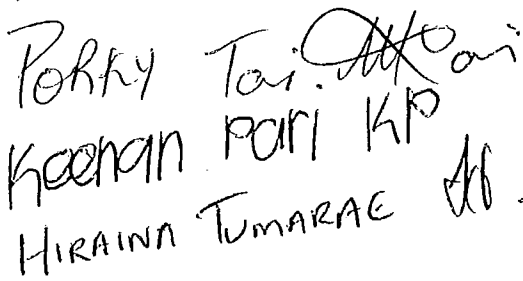 Porky Tai.
Keenan Pari KP
HIRAINA TUMARAE